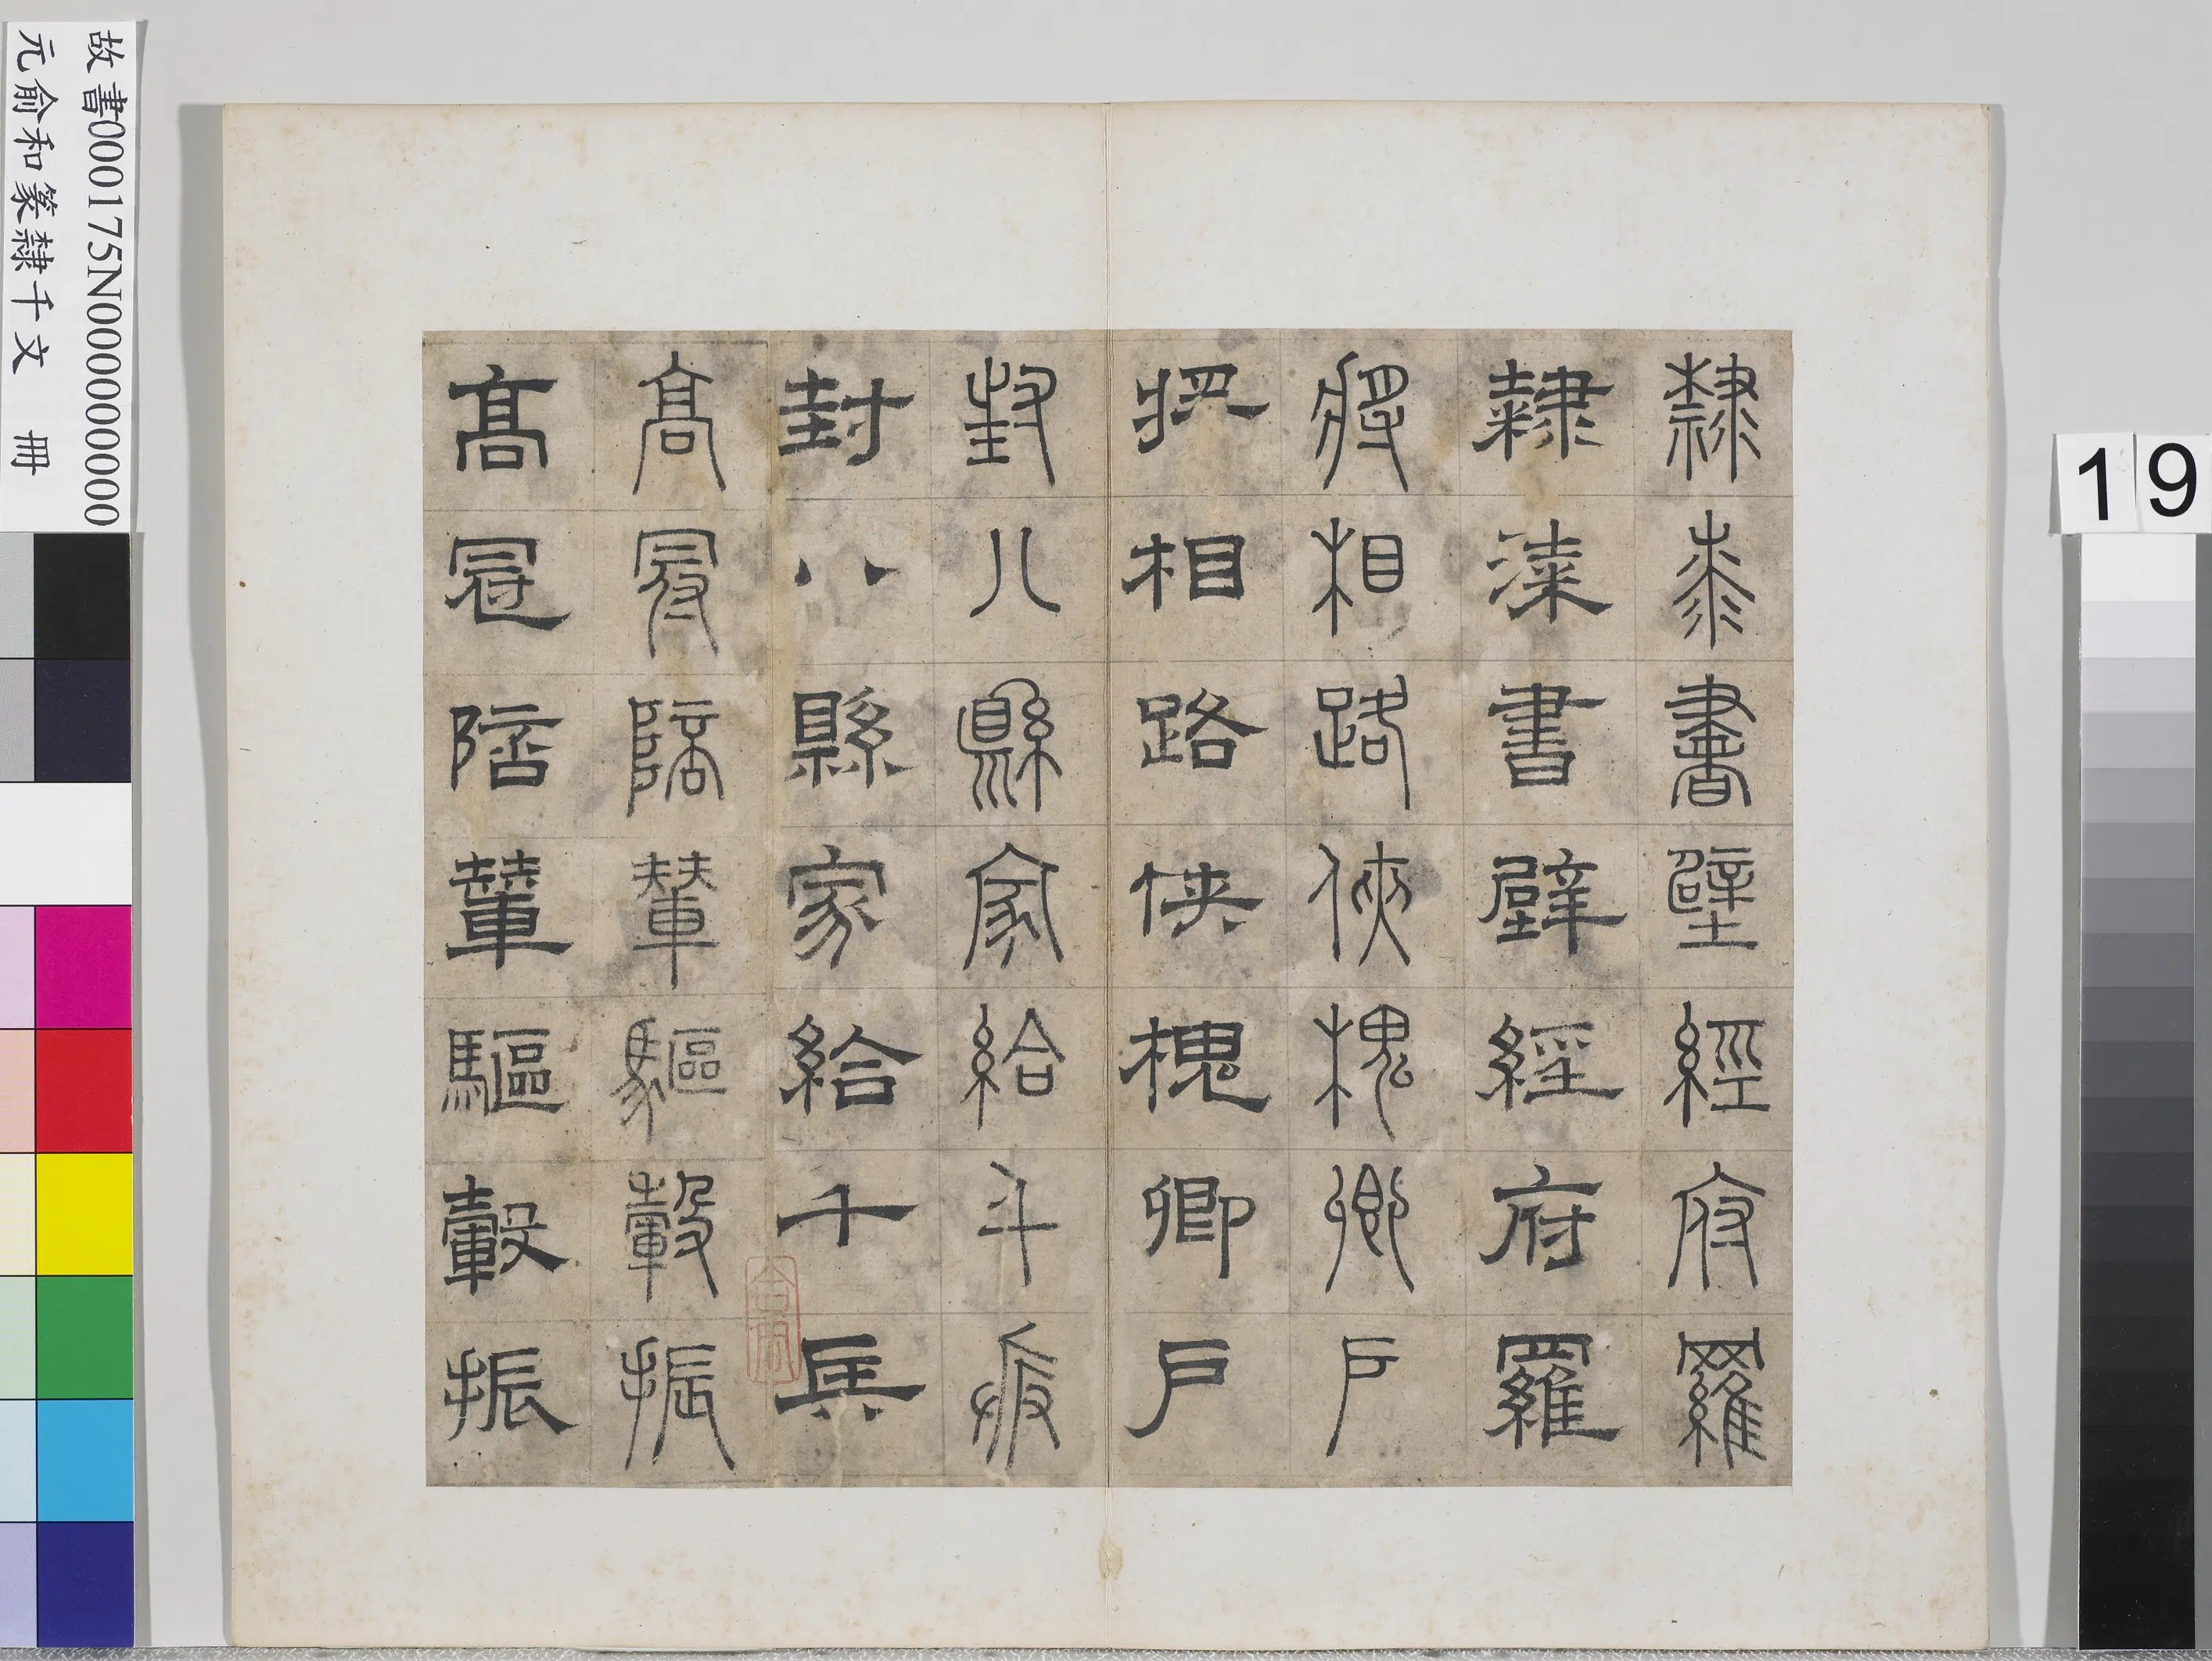 隸漆書壁經府羅
隸漆書壁經府羅
將相路俠槐卿戶
將相路俠槐卿戶
封八縣家給千兵
封八縣家給千兵
高冠陪輦驅轂振
高冠陪輦驅轂振
故書000175N000000000
元俞和篆隸千文 冊
19